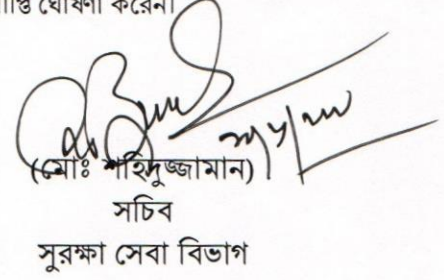 ঘোষণা করেন।
(মোঃ শহিদুজ্জামান)
সচিব
সুরক্ষা সেবা বিভাগ